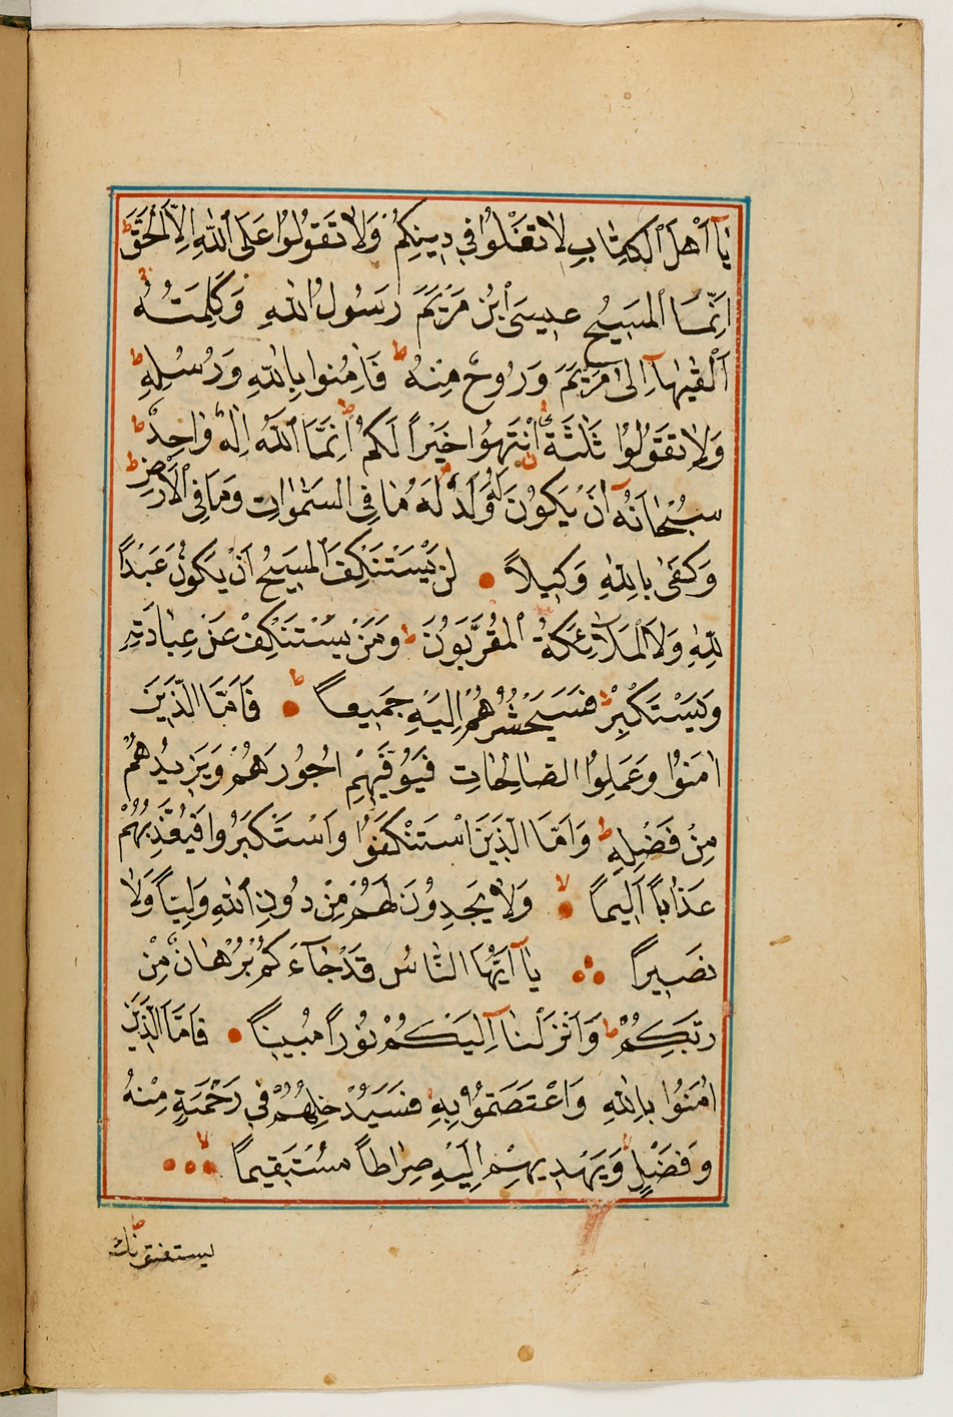 يَآ اَهْلَ الْكِتَابِ لَا تَغْلُوا فِي دِينِكُمْ وَلَا تَقُولُوا عَلَى اللّٰهِ اِلَّا الْحَقَّ ط
اِنَّمَا الْمَسِيحُ عِيسَى ابْنُ مَرْيَمَ رَسُولُ اللّٰهِ وَكَلِمَتُهُ
اَلْقٰيهَآ اِلٰى مَرْيَمَ وَرُوحٌ مِنْهُ ط فَاٰمِنُوا بِاللّٰهِ وَرُسُلِهِ ط
وَلَا تَقُولُوا ثَلٰثَةٌ اِنْتَهُوا خَيْراً لَكُمْ ط اِنَّمَا اللّٰهُ اِلٰهٌ وَاحِدٌ ط
سُبْحَانَهُٓ اَنْ يَكُونَ لَهُ وَلَدٌ لَهُ مَا فِي السَّمٰوَاتِ وَمَا فِي الْاَرْضِ ط
وَكَفٰى بِاللّٰهِ وَكِيلاً لَنْ يَسْتَنْكِفَ الْمَسِيحُ اَنْ يَكُونَ عَبْداً
لِلّٰهِ وَلَا الْمَلٰٓئِكَةُ الْمُقَرَّبُونَ ط وَمَنْ يَسْتَنْكِفْ عَنْ عِبَادَتِهِ
وَيَسْتَكْبِرْ فَسَيَحْشُرُهُمْ اِلَيْهِ جَمِيعاً ط فَاَمَّا الَّذِينَ
اٰمَنُوا وَعَمِلُوا الصَّالِحَاتِ فَيُوَفِّيهِمْ اُجُورَهُمْ وَيَزِيدُهُمْ
مِنْ فَضْلِهِ ط وَاَمَّا الَّذِينَ اسْتَنْكَفُوا وَاسْتَكْبَرُوا فَيُعَذِّبُهُمْ
عَذَاباً اَلِيماً لا وَلَا يَجِدُونَ لَهُمْ مِنْ دُونِ اللّٰهِ وَلِيّاً وَلَا
نَصِيراً يَآ اَيُّهَا النَّاسُ قَدْ جَآءَكُمْ بُرْهَانٌ مِنْ
رَبِّكُمْ ط وَاَنْزَلْنَآ اِلَيْكُمْ نُوراً مُبِيناً فَاَمَّا الَّذِينَ
اٰمَنُوا بِاللّٰهِ وَاعْتَصَمُوا بِهِ فَسَيُدْخِلُهُمْ فِي رَحْمَةٍ مِنْهُ
وَفَضْلٍ وَيَهْدِيهِمْ اِلَيْهِ صِرَاطاً مُسْتَقِيماً لا
يستفتونك ط